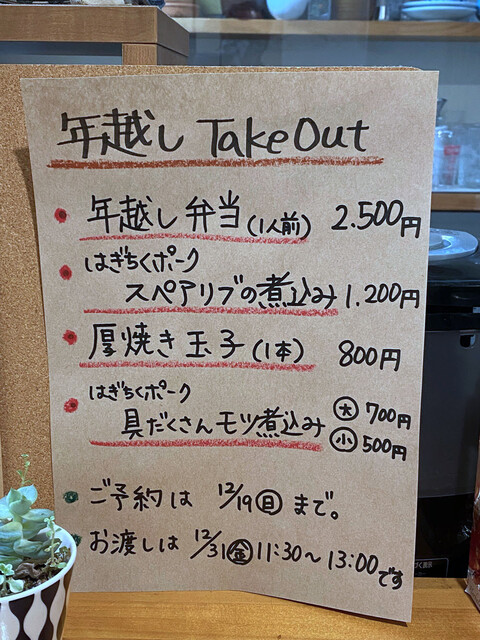 年越し Take Out
年越し弁当(1人前) 2.500円
はぎちくポーク
スペアリブの煮込み 1.200円
厚焼き玉子(1本) 800円
はぎちくポーク
具だくさんモツ煮込み 大 700円
小 500円
ご予約は 12/19日 まで。
お渡しは 12/31金 11:30〜13:00です